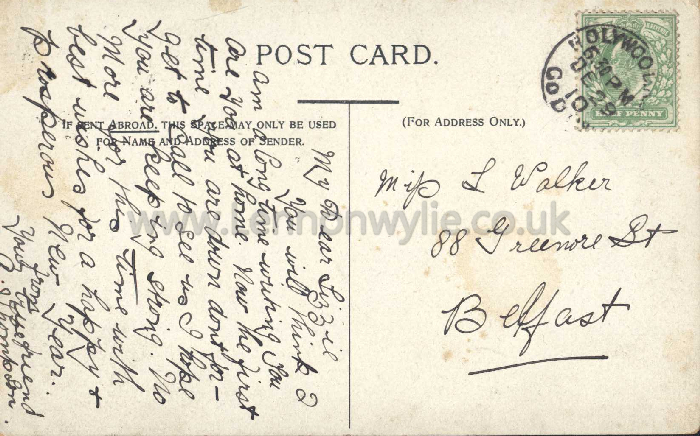 POST CARD.
IF SENT ABROAD, THIS SPACE MAY ONLY BE USED
FOR NAME AND ADDRESS OF SENDER.
(FOR ADDRESS ONLY.)
My Dear Lizzie
You will think I
am a long time writing You
are You at home Now the first
time You are down dont for-
get to call to see us I hope
You are keeping strong. No
More for this time with
best wishes for a happy &
prosperous New Year.
from
Your true friend
Thompson.
Miss L Walker
88 Greenore St
Belfast
HOLYWOOD
5 30 PM
DE 29
10
Co D
HALF PENNY
www.lennonwylie.co.uk